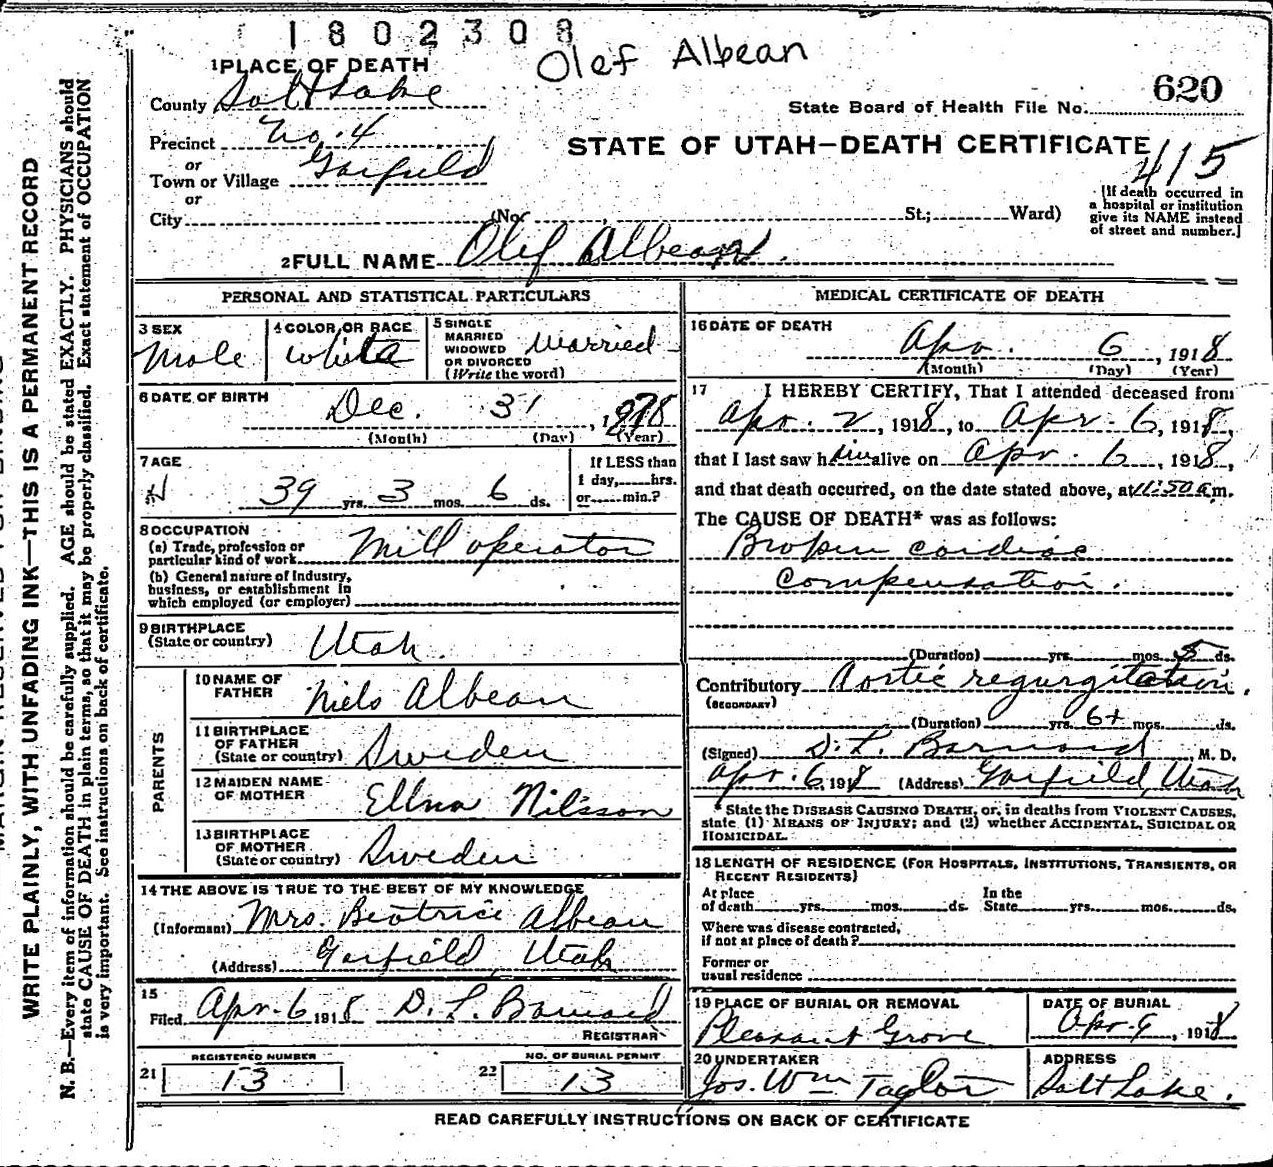 1802308
Olef Albean
1 PLACE OF DEATH
County Salt Lake
Precinct No. 4
or
Town or Village Garfield
or
City (No. St.; Ward)
620
State Board of Health File No.
STATE OF UTAH—DEATH CERTIFICATE
415
[If death occurred in
a hospital or institution
give its NAME instead
of street and number.]
2 FULL NAME Olef Albean
PERSONAL AND STATISTICAL PARTICULARS
3 SEX
Male
4 COLOR OR RACE
White
5 SINGLE
MARRIED
WIDOWED
OR DIVORCED
(Write the word)
Married
6 DATE OF BIRTH
Dec. 31, 1878
(Month) (Day) (Year)
7 AGE
39 yrs. 3 mos. 6 ds.
If LESS than
1 day, hrs.
or min.?
8 OCCUPATION
(a) Trade, profession or
particular kind of work Mill operator
(b) General nature of Industry,
business, or establishment in
which employed (or employer)
9 BIRTHPLACE
(State or country) Utah.
PARENTS
10 NAME OF
FATHER Niels Albean
11 BIRTHPLACE
OF FATHER
(State or country) Sweden
12 MAIDEN NAME
OF MOTHER Ellna Nilsson
13 BIRTHPLACE
OF MOTHER
(State or country) Sweden
14 THE ABOVE IS TRUE TO THE BEST OF MY KNOWLEDGE
(Informant) Mrs. Beatrice Albean
(Address) Garfield, Utah
15
Filed Apr. 6 1918 D. L. Barnard
REGISTRAR
REGISTERED NUMBER
21 13
NO. OF BURIAL PERMIT
22 13
MEDICAL CERTIFICATE OF DEATH
16 DATE OF DEATH
Apr. 6, 1918
(Month) (Day) (Year)
17 I HEREBY CERTIFY, That I attended deceased from
Apr. 2, 1918, to Apr. 6, 1918,
that I last saw him alive on Apr. 6, 1918,
and that death occurred, on the date stated above, at 11:50 a m.
The CAUSE OF DEATH* was as follows:
Broken cardiac
compensation.
(Duration) yrs. mos. 5 ds.
Contributory Aortic regurgitation.
(SECONDARY)
(Duration) yrs. 6+ mos. ds.
(Signed) D. L. Barnard M. D.
Apr. 6, 1918 (Address) Garfield, Utah
*State the DISEASE CAUSING DEATH, or, in deaths from VIOLENT CAUSES,
state (1) MEANS OF INJURY; and (2) whether ACCIDENTAL, SUICIDAL OR
HOMICIDAL.
18 LENGTH OF RESIDENCE (FOR HOSPITALS, INSTITUTIONS, TRANSIENTS, OR
RECENT RESIDENTS)
At place
of death yrs. mos. ds.
In the
State yrs. mos. ds.
Where was disease contracted,
if not at place of death?
Former or
usual residence
19 PLACE OF BURIAL OR REMOVAL
Pleasant Grove
DATE OF BURIAL
Apr. 9, 1918
20 UNDERTAKER
Jos. Wm Taylor
ADDRESS
Salt Lake.
READ CAREFULLY INSTRUCTIONS ON BACK OF CERTIFICATE
WRITE PLAINLY, WITH UNFADING INK—THIS IS A PERMANENT RECORD
N. B.—Every item of information should be carefully supplied. AGE should be stated EXACTLY. PHYSICIANS should
state CAUSE OF DEATH in plain terms, so that it may be properly classified. Exact statement of OCCUPATION
is very important. See instructions on back of certificate.